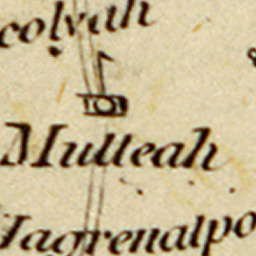 colyah
Mulleah
Jagrenalpo